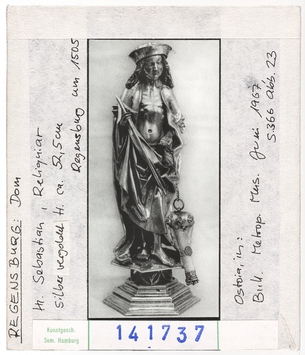 REGENSBURG: Dom
Hl. Sebastian, Reliquiar
Silber vergoldet H. ca. 52,5cm
Regensburg um 1505
Ostoia, in:
Bull. Metrop. Mus. Juni 1967
S.366 Abb. 23
Kunstgesch.
Sem. Hamburg
141737